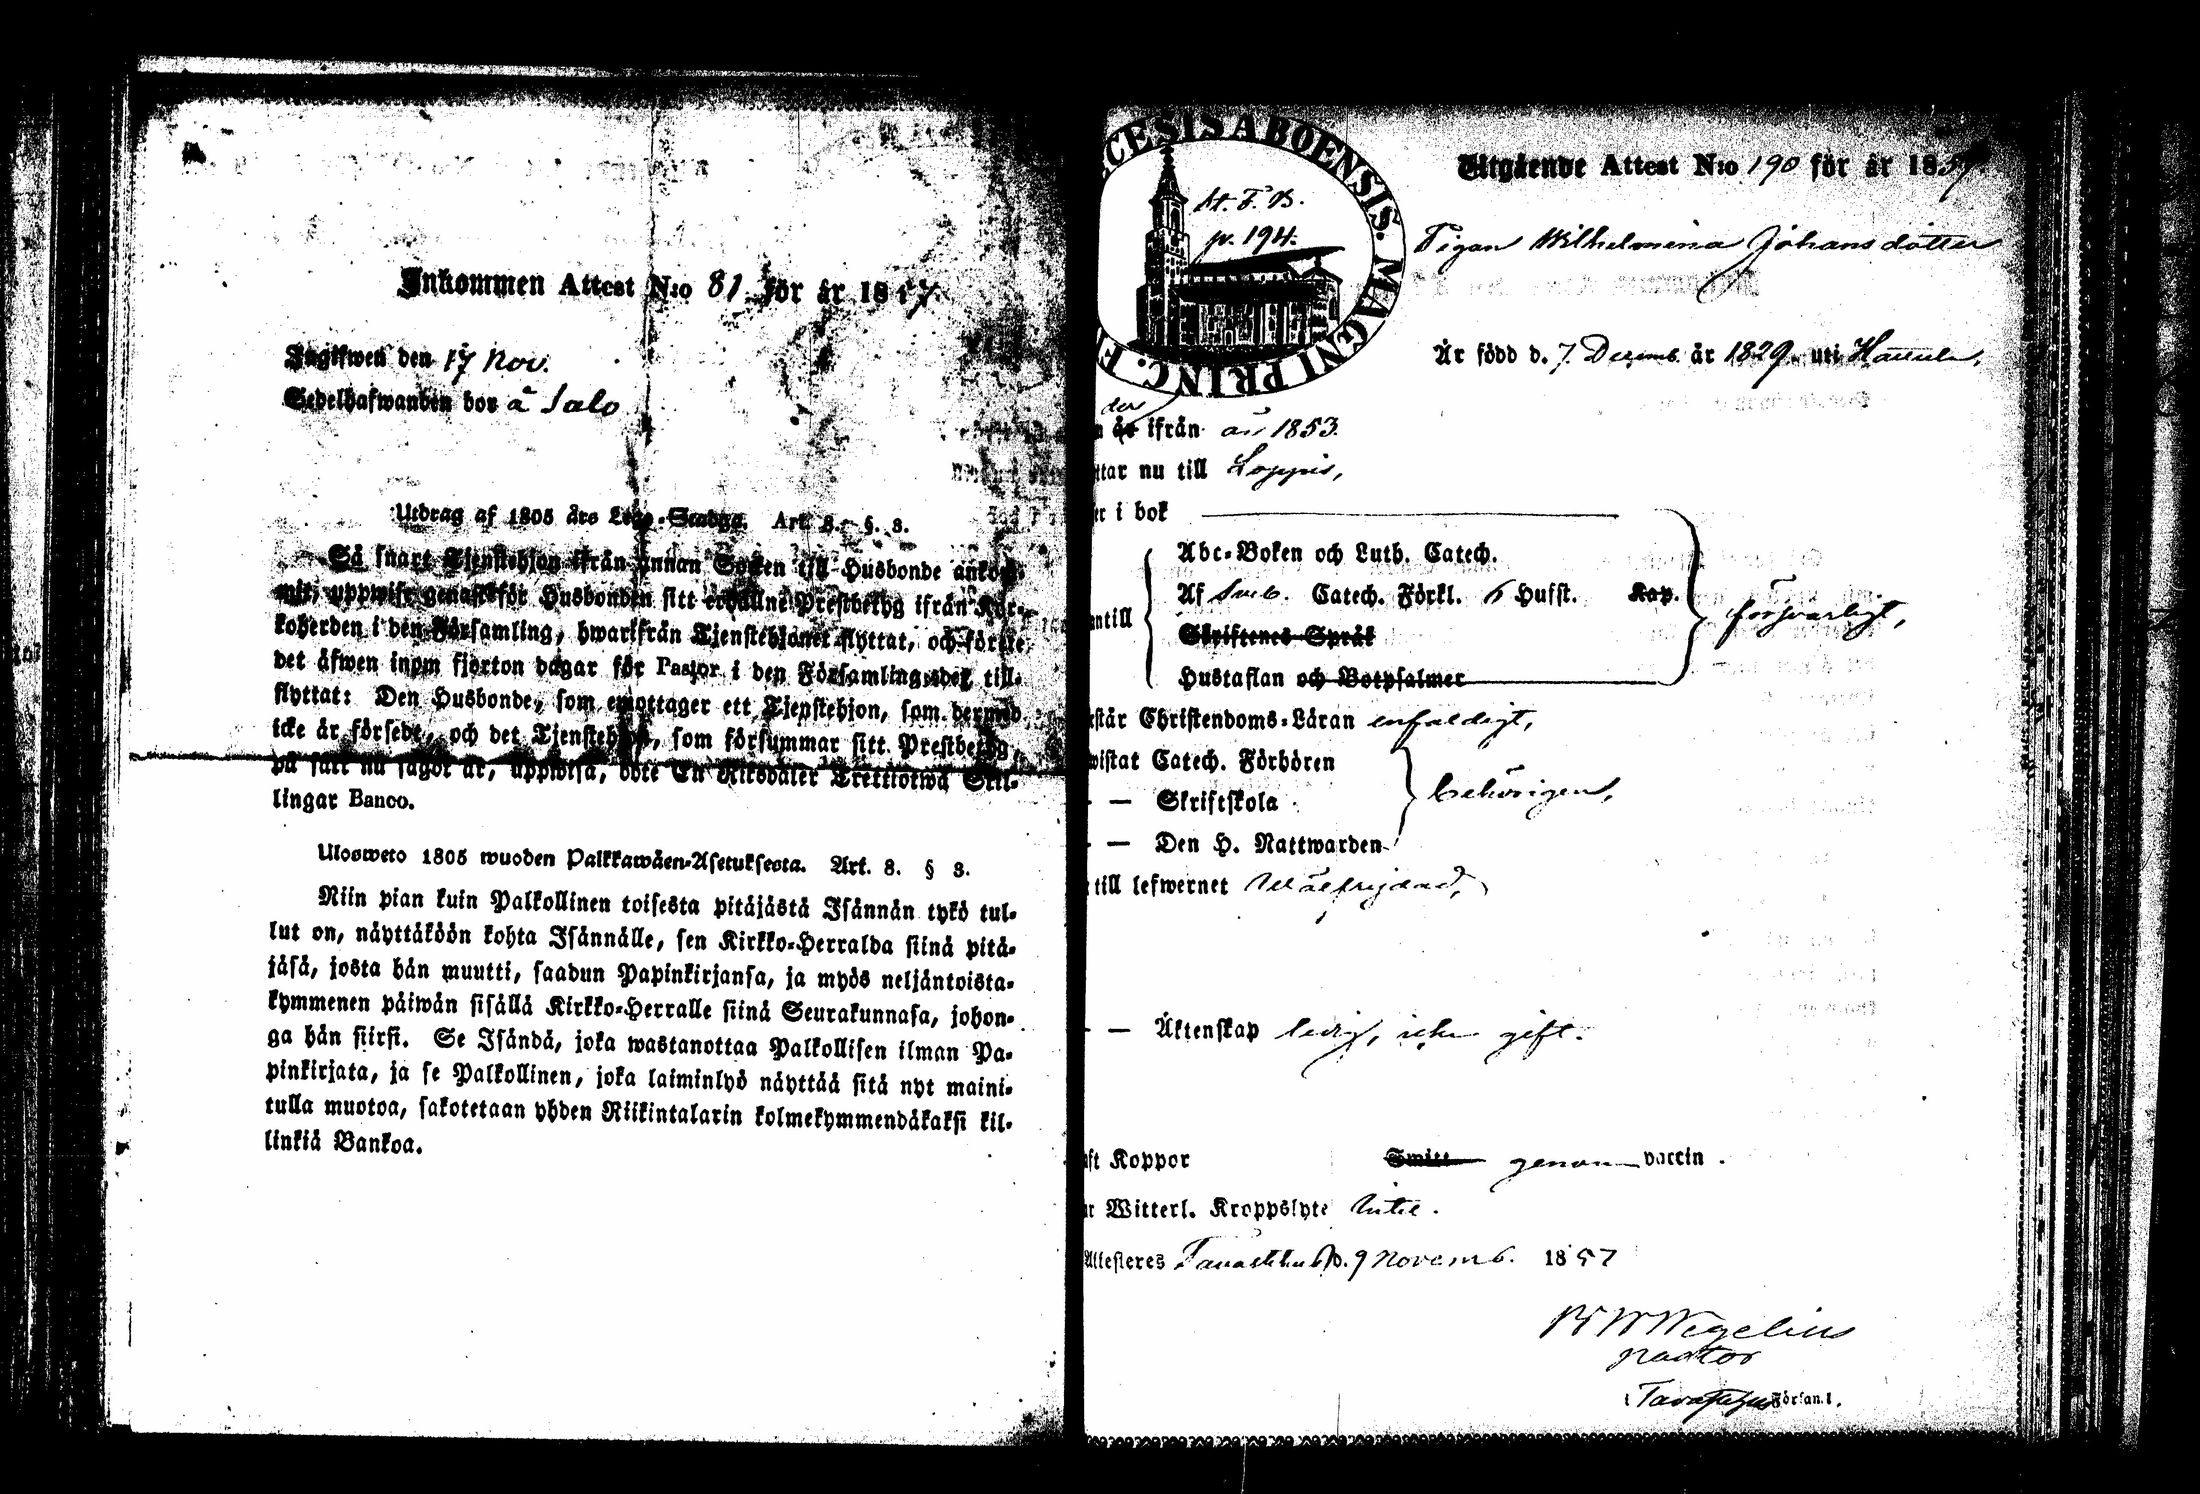 Inkommen Attest N:o 81 för år 1857
Ingifwen den 17 Nov.
Sedelhafwanden bor å Salo
Utdrag af 1805 års Lego-Stadga. Art. 8. §. 3.
Så snart Tjenstehjon ifrån annan Socken till Husbonde ankom-
mit, uppwise genast för Husbonden sitt erhållne Prestbetyg ifrån Kyr-
koherden i den Församling, hwarifrån Tjenstehjonet flyttat, och förete
det äfwen inom fjorton dagar för Pastor i den Församling det till-
flyttat: Den Husbonde, som emottager ett Tjenstehjon, som dermed
icke är försedt, och det Tjenstehjon, som försummar sitt Prestbetyg,
på sätt nu sagdt är, uppwisa, böte En Riksdaler Trettiotwå Skil-
lingar Banco.
Ulosweto 1805 wuoden Palkkawäen-Asetuksesta. Art. 8. § 3.
Niin pian kuin Palkollinen toisesta pitäjästä Isännän tykö tul-
lut on, näyttäköön kohta Isännälle, sen Kirkko-Herralda siinä pitä-
jäsä, josta hän muutti, saadun Papinkirjansa, ja myös neljäntoista-
kymmenen päiwän sisällä Kirkko-Herralle siinä Seurakunnasa, johon-
ga hän siirsi. Se Isändä, joka wastanottaa Palkollisen ilman Pa-
pinkirjata, ja se Palkollinen, joka laiminlyö näyttää sitä nyt maini-
tulla muotoa, sakotetaan yhden Riikintalarin kolmekymmendäkaksi kil-
linkiä Bankoa.
CESIS ABOENSIS. MAGNI PRINC. F
p. 194.
Utgående Attest N:o 190 för år 1857.
Pigan Wilhelmina Johansdotter
Är född d. 7 Dezemb. år 1829 uti
der
är ifrån år 1853.
ttar nu till Loppis,
er i bok
Abc-Boken och Luth. Catech.
Af Sveb. Catech. Förkl. 6 Hufst. Kap.
ntill
Skriftenes Språk
försvarligt,
Hustaflan och Botpsalmer
står Christendoms-Läran enfaldigt,
wistat Catech. Förhören
— Skriftskola
behörigen,
— Den H. Nattwarden
till lefwernet Wälfrejdad,
— Äktenskap ledig, icke gift.
ft Koppor Smitt genom vaccin.
r Witterl. Kroppslyte intet.
Attesteres Tavastehus d. 9 Novemb. 1857
Wegelius
pastor
i Tavastehus Församl.